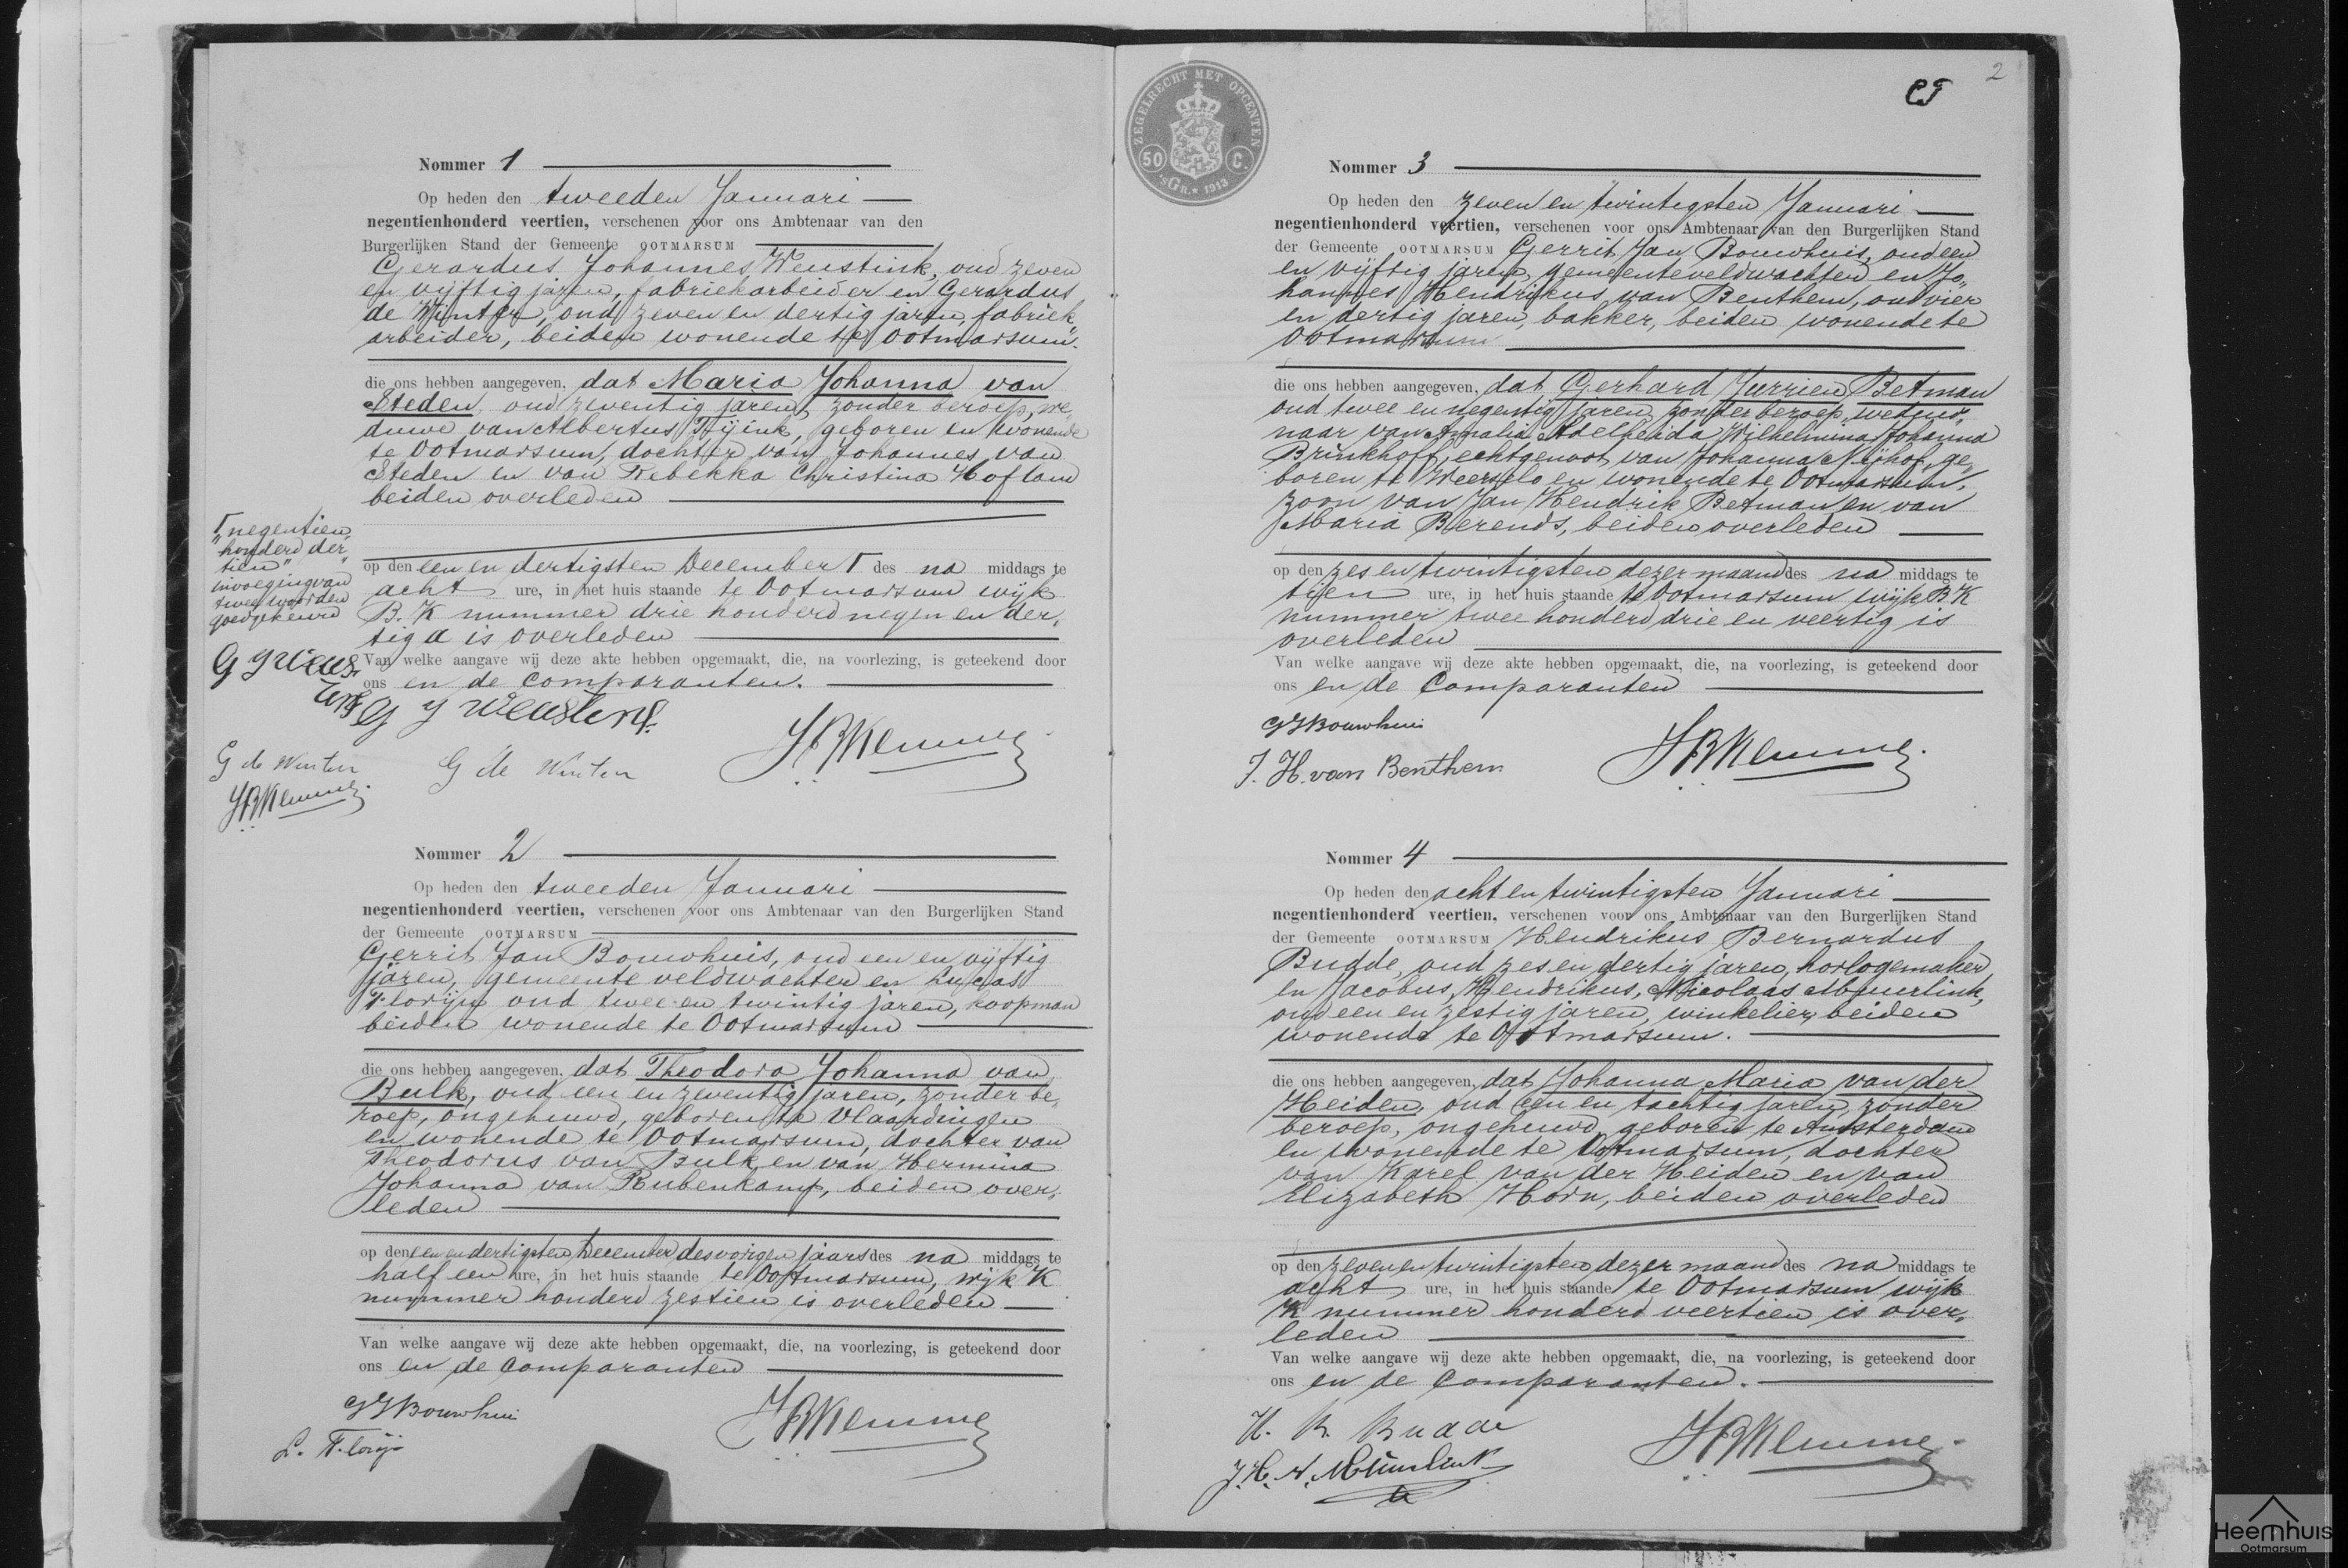 Nommer 1
Op heden den tweeden Januari
negentienhonderd veertien, verschenen voor ons Ambtenaar van den
Burgerlijken Stand der Gemeente OOTMARSUM
Gerardus Johannes Weustink, oud zeven
en vijftig jaren, fabriekarbeider en Gerardus
de Winter, oud zeven en dertig jaren, fabriek„
arbeider, beiden wonende te Ootmarsum.
die ons hebben aangegeven, dat Maria Johanna van
Steden, oud zeventig jaren, zonder beroep, we„
duwe van Albertus Tijink, geboren en wonende
te Ootmarsum, dochter van Johannes van
Steden en van Rebekka Christina Hofland
beiden overleden
op den een en dertigsten December ⌈ des na middags te
acht ure, in het huis staande te Ootmarsum wijk
B.K nummer drie honderd negen en der„
tig a is overleden
Van welke aangave wij deze akte hebben opgemaakt, die, na voorlezing, is geteekend door
ons en de Comparanten.
⌈ „negentien„
„honderd der„
tien"
invoeging van
twee woorden
goedgekeurd
G J Weus„
tink
G J Weustink
G de Winter
G de Winter
HBKlemme
HBKlemme
Nommer 2
Op heden den tweeden Januari
negentienhonderd veertien, verschenen voor ons Ambtenaar van den Burgerlijken Stand
der Gemeente OOTMARSUM
Gerrit Jan Bouwhuis, oud een en vijftig
jaren, gemeente veldwachter en Lucas
Florijn oud twee en twintig jaren, koopman
beiden wonende te Ootmarsum
die ons hebben aangegeven, dat Theodora Johanna van
Bulk, oud een en zeventig jaren, zonder be„
roep, ongehuwd, geboren te Vlaardingen
en wonende te Ootmarsum, dochter van
Theodorus van Bulk en van Hermina
Johanna van Rubenkamp, beiden over„
leden
op den een en dertigsten December des vorigen jaars des na middags te
half een ure, in het huis staande te Ootmarsum, wijk K
nummer honderd zestien is overleden
Van welke aangave wij deze akte hebben opgemaakt, die, na voorlezing, is geteekend door
ons en de Comparanten
GJBouwhuis
L. Florijn
HBKlemme
2
ZEGELRECHT MET OPCENTEN
50 C.
'sGR. 1913
Nommer 3
Op heden den zeven en twintigsten Januari
negentienhonderd veertien, verschenen voor ons Ambtenaar van den Burgerlijken Stand
der Gemeente OOTMARSUM Gerrit Jan Bouwhuis, oud een
en vijftig jaren, gemeenteveldwachter en Jo„
hannes Hendrikus van Benthem, oud vier
en dertig jaren, bakker, beiden wonende te
Ootmarsum
die ons hebben aangegeven, dat Gerhard Jurrien Betman
oud twee en negentig jaren, zonder beroep, weduw„
naar van Amalia Adelheida Wilhelmina Johanna
Brinkhoff, echtgenoot van Johanna Nijhof, ge„
boren te Weerselo en wonende te Ootmarsum,
zoon van Jan Hendrik Betman en van
Maria Berends, beiden overleden
op den zes en twintigsten dezer maand des na middags te
tien ure, in het huis staande te Ootmarsum wijk B.K
nummer twee honderd drie en veertig is
overleden
Van welke aangave wij deze akte hebben opgemaakt, die, na voorlezing, is geteekend door
ons en de Comparanten
GJBouwhuis
J. H. van Benthem
HBKlemme
Nommer 4
Op heden den acht en twintigsten Januari
negentienhonderd veertien, verschenen voor ons Ambtenaar van den Burgerlijken Stand
der Gemeente OOTMARSUM Hendrikus Bernardus
Budde, oud zes en dertig jaren, horlogemaker
en Jacobus, Hendrikus, Nicolaas
oud een en zestig jaren, winkelier, beiden
wonende te Ootmarsum.
die ons hebben aangegeven, dat Johanna Maria van der
Heiden, oud een en tachtig jaren, zonder
beroep, ongehuwd, geboren te Amsterdam
en wonende te Ootmarsum, dochter
van Karel van der Heiden en van
Elizabeth Horn, beiden overleden
op den zeven en twintigsten dezer maand des na middags te
acht ure, in het huis staande te Ootmarsum wijk
K nummer honderd veertien is over„
leden
Van welke aangave wij deze akte hebben opgemaakt, die, na voorlezing, is geteekend door
ons en de Comparanten.
H. B. Budde
J. H. N.
HBKlemme
Heemhuis
Ootmarsum